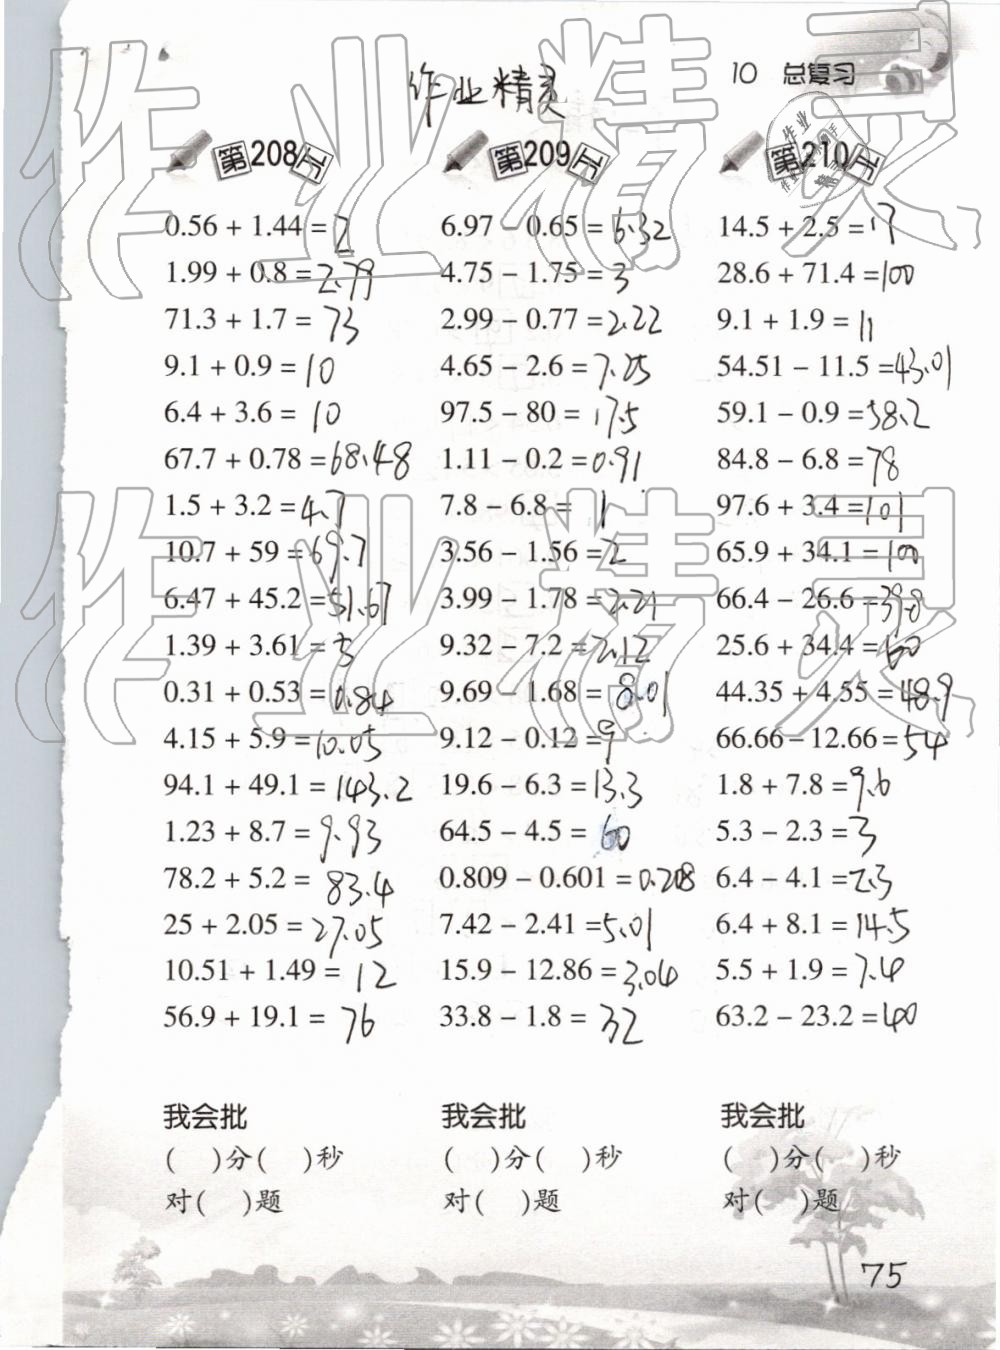 作业精灵
10 总复习
第208天
0.56 + 1.44 = 2
1.99 + 0.8 = 2.79
71.3 + 1.7 = 73
9.1 + 0.9 = 10
6.4 + 3.6 = 10
67.7 + 0.78 = 68.48
1.5 + 3.2 = 4.7
10.7 + 59 = 69.7
6.47 + 45.2 = 51.67
1.39 + 3.61 = 5
0.31 + 0.53 = 0.84
4.15 + 5.9 = 10.05
94.1 + 49.1 = 143.2
1.23 + 8.7 = 9.93
78.2 + 5.2 = 83.4
25 + 2.05 = 27.05
10.51 + 1.49 = 12
56.9 + 19.1 = 76
我会批
( )分( )秒
对( )题
第209天
6.97 - 0.65 = 6.32
4.75 - 1.75 = 3
2.99 - 0.77 = 2.22
4.65 - 2.6 = 7.25
97.5 - 80 = 17.5
1.11 - 0.2 = 0.91
7.8 - 6.8 = 1
3.56 - 1.56 = 2
3.99 - 1.78 = 2.21
9.32 - 7.2 = 2.12
9.69 - 1.68 = 8.01
9.12 - 0.12 = 9
19.6 - 6.3 = 13.3
64.5 - 4.5 = 60
0.809 - 0.601 = 0.208
7.42 - 2.41 = 5.01
15.9 - 12.86 = 3.04
33.8 - 1.8 = 32
我会批
( )分( )秒
对( )题
第210天
14.5 + 2.5 = 17
28.6 + 71.4 = 100
9.1 + 1.9 = 11
54.51 - 11.5 = 43.01
59.1 - 0.9 = 58.2
84.8 - 6.8 = 78
97.6 + 3.4 = 101
65.9 + 34.1 = 100
66.4 - 26.6 = 39.8
25.6 + 34.4 = 60
44.35 + 4.55 = 48.9
66.66 - 12.66 = 54
1.8 + 7.8 = 9.6
5.3 - 2.3 = 3
6.4 - 4.1 = 2.3
6.4 + 8.1 = 14.5
5.5 + 1.9 = 7.4
63.2 - 23.2 = 40
我会批
( )分( )秒
对( )题
75
作业精灵
作业精灵